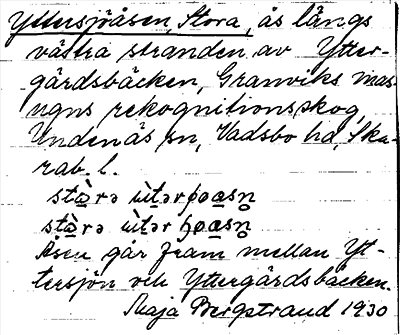 Yttersjöåsen, Stora, ås längs
västra stranden av Ytter-
gårdsbäcken, Granviks mas-
ugns rekognitionsskog,
Undenäs sn, Vadsbo hd, Ska-
rab. l.
Åsen går fram mellan Yt-
tersjön och Yttergårdsbäcken.
Maja Bergstrand 1930